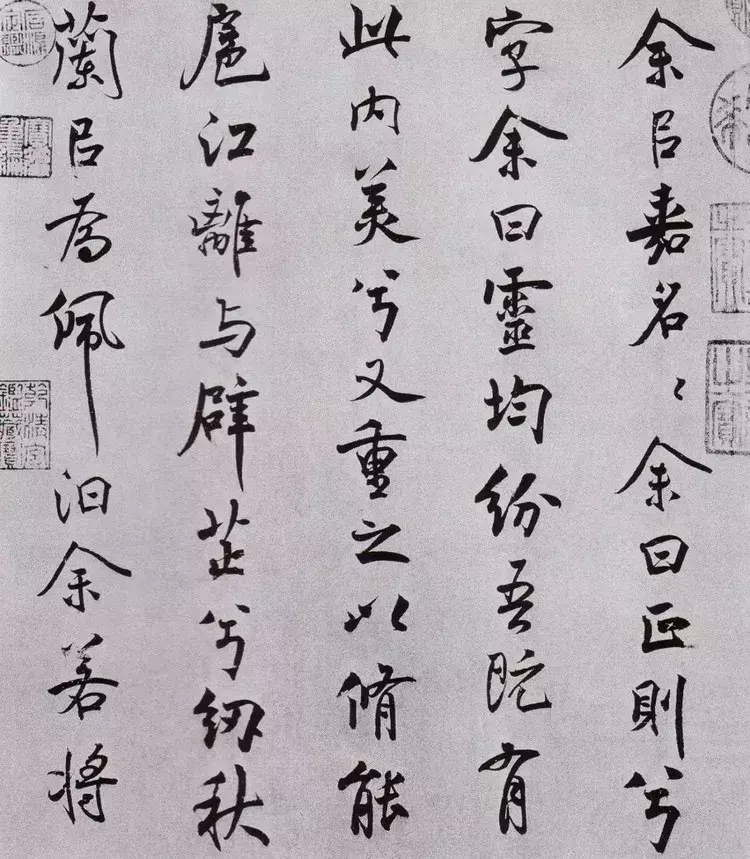 余㠯嘉名〻余曰正則兮
字余曰靈均紛吾既有
此内美兮又重之以脩能
扈江離与辟芷兮紉秋
蘭㠯為佩汩余若将